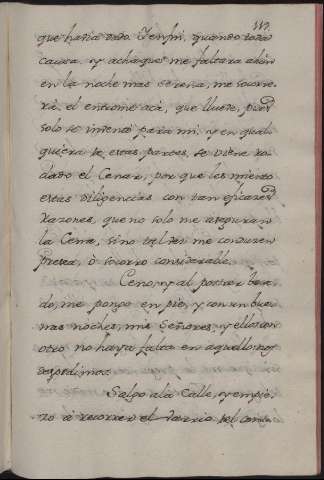 119.
que havia dado. Tenfin, quando toda
causa, y achaque me faltara ahun
en la noche mas serena, me socorre-
rè el entrome acà, que llueve, pues
solo se inventò para mi. y en qual-
quiera de estas partes, se viene ro-
dado el Cenar, por que les miento
estas diligencias con tan eficazes
razones, que no solo me aseguran
la Cena, sino tal vez me conducen
presea, ò socorro considerable.
Ceno, y al postrer boca-
do, me pongo en pie, y con un bue-
nas noches, mis Señores, y ellos con
otro no haya falta en aquello: nos
despedimos.
Salgo à la Calle, y empie-
zo à recorrer el varrio del